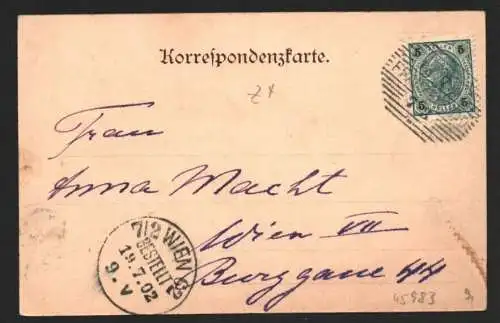 Korrespondenzkarte.
5 5
Z4
Frau
Anna Macht
Wien VII
Burggasse 44
7/2 WIEN 63
BESTELLT
19.7.02
9-V
45983